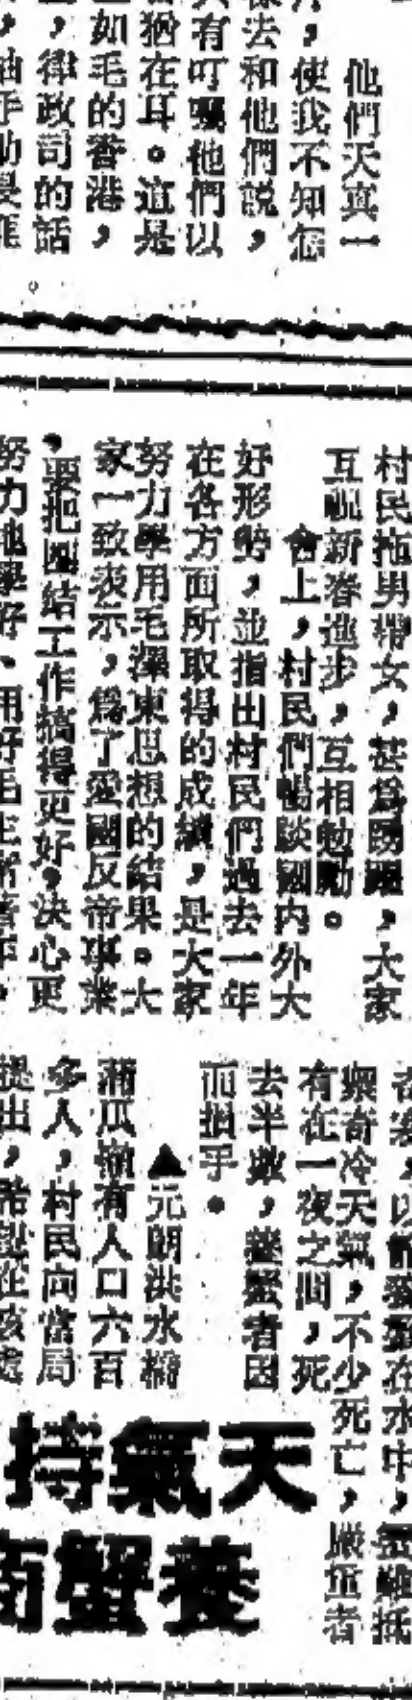 他們天真一
使我不知怎
去和他們說，
有叮囑他們以
猶在耳。這是
如毛的香港，
律政司的話
村民拖男帶女，甚為踴躍，大家
互祝新春進步，互相勉勵。
會上，村民們暢談國內外大
好形勢，並指出村民們過去一年
在各方面所取得的成績，是大家
努力學用毛澤東思想的結果。大
家一致表示，為了愛國反帝事業
，要把團結工作搞得更好，決心更
努力地學好、用好毛主席著作。
在水中，
奇冷天氣，不少死亡，嚴重者
有在一夜之間，死
去半數，養蟹者因
而損手。
▲元朗洪水橋
有人口六百
多人，村民向當局
提出，希望在該處
天氣持
養蟹商